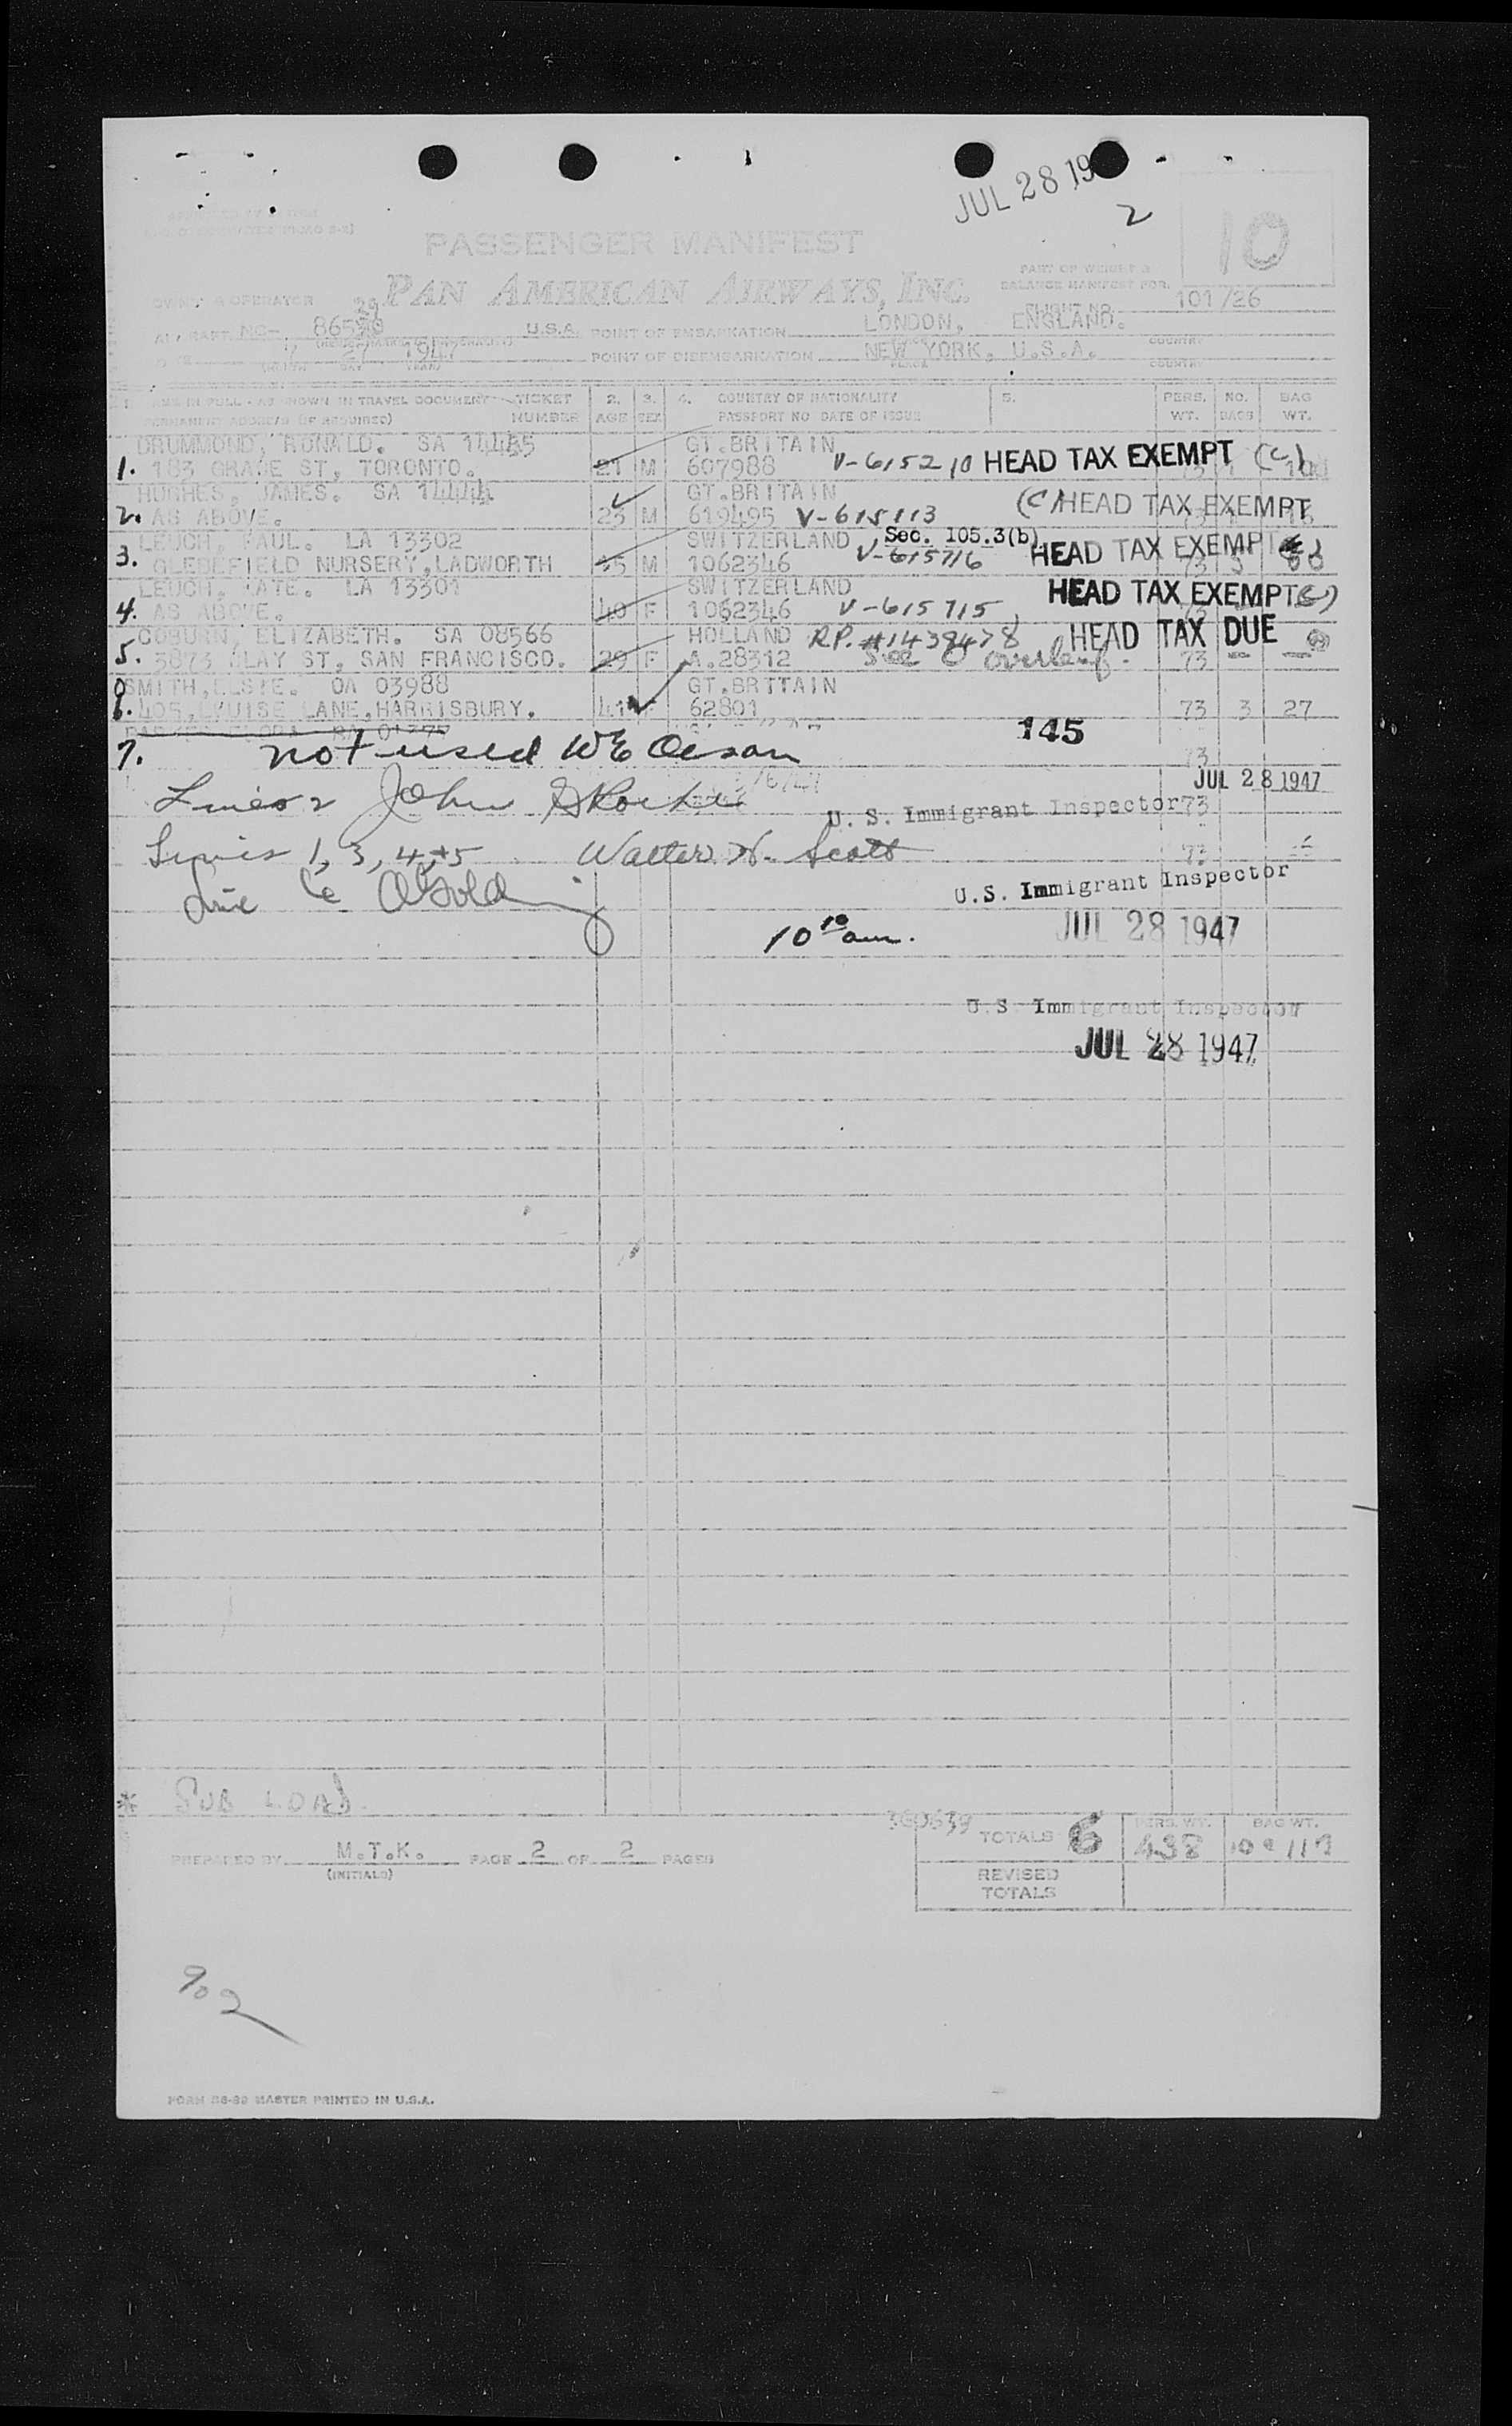 JUL 28 19
2
10
PASSENGER MANIFEST
PAN AMERICAN AIRWAYS, INC.
PART OF WEIGHT &
BALANCE MANIFEST FOR.
FLIGHT NO. 101/26
OPERATOR
29
NC- 86530 U.S.A. POINT OF EMBARKATION LONDON, ENGLAND.
COUNTRY
7 27 1947 POINT OF DISEMBARKATION NEW YORK, U.S.A.
PLACE COUNTRY
IN FULL - AS SHOWN IN TRAVEL DOCUMENT TICKET 2. 3. 4. COUNTRY OF NATIONALITY 5. PERS. NO. BAG
PERMANENT ADDRESS (IF REQUIRED) NUMBER AGE SEX PASSPORT NO DATE OF ISSUE WT. BAGS WT.
DRUMMOND, RONALD. SA 14485 GT.BRITAIN
1. 183 GRACE ST, TORONTO. 21 M 607988 V-615210 HEAD TAX EXEMPT (C)
HUGHES, JAMES. SA 14444 GT.BRITAIN
2. AS ABOVE. 23 M 619495 V-615113 (C) HEAD TAX EXEMPT
LEUCH, PAUL. LA 13302 SWITZERLAND Sec. 105.3(b)
3. NURSERY, LADWORTH M 1062346 V-615716 HEAD TAX EXEMPT 73
LEUCH, KATE. LA 13301 SWITZERLAND
4. AS ABOVE. 40 F 1062346 V-615715 HEAD TAX EXEMPT (C)
COBURN, ELIZABETH. SA 08566 HOLLAND R.P. #1439478 HEAD TAX DUE
5. 3873 CLAY ST, SAN FRANCISCO. 29 F A.28312 See overleaf. 73
SMITH, ELSIE. OA 03988 GT.BRITAIN
6. 405, LOUISE LANE, HARRISBURY. 41 F 62801 73 3 27
145
7. not used WE Olson
73
JUL 28 1947
Lines 2 John
U. S. Immigrant Inspector 73
Lines 1, 3, 4, +5 Walter N. Scott 73
Line 6
U.S. Immigrant Inspector
10 10 am. JUL 28 1947
U.S. Immigrant Inspector
JUL 28 1947
* SUB LOAD
360639 TOTALS 6 PERS. WT. 438 BAG WT.
PREPARED BY M.T.K. PAGE 2 OF 2 PAGES
(INITIALS)
REVISED
TOTALS
902
MASTER PRINTED IN U.S.A.